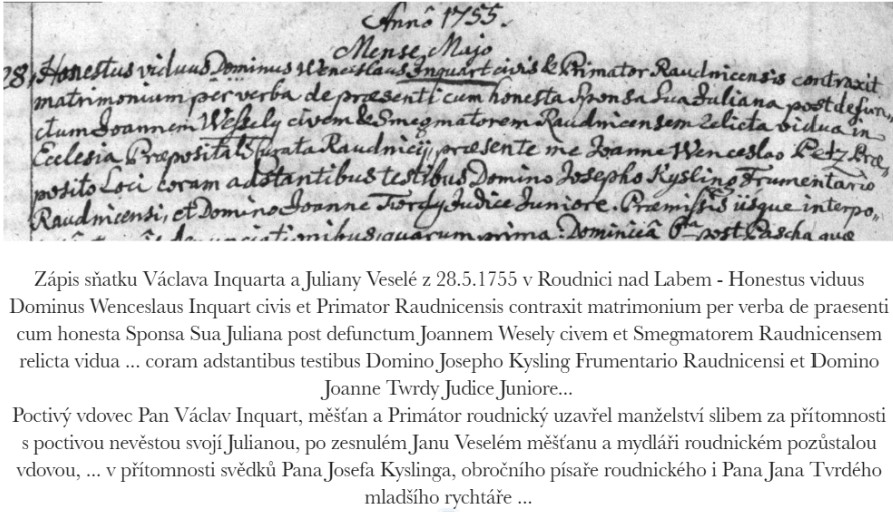 Annô 1755.
Mense Majo
28, Honestus viduus Dominus Wenceslaus Inquart civis & Primator Raudnicensis contraxit
matrimonium per verba de præsenti cum honesta Sponsa Sua Juliana post defun,,
ctum Joannem Wessely civem & Smegmatorem Raudnicensem relicta vidua in
Ecclesia Præpositali Curata Raudnicij, præsente me Joanne Wenceslao Petz Præ,,
posito Loci coram adstantibus testibus Domino Josepho Kysling Frumentario
Raudnicensi, et Domino Joanne Twrdy Judice Juniore. Præmissis usque interpo,,
denunciationibus, quarum prima Dominicâ post Pascha quæ
Zápis sňatku Václava Inquarta a Juliany Veselé z 28.5.1755 v Roudnici nad Labem - Honestus viduus
Dominus Wenceslaus Inquart civis et Primator Raudnicensis contraxit matrimonium per verba de praesenti
cum honesta Sponsa Sua Juliana post defunctum Joannem Wesely civem et Smegmatorem Raudnicensem
relicta vidua ... coram adstantibus testibus Domino Josepho Kysling Frumentario Raudnicensi et Domino
Joanne Twrdy Judice Juniore...
Poctivý vdovec Pan Václav Inquart, měšťan a Primátor roudnický uzavřel manželství slibem za přítomnosti
s poctivou nevěstou svojí Julianou, po zesnulém Janu Veselém měšťanu a mydláři roudnickém pozůstalou
vdovou, ... v přítomnosti svědků Pana Josefa Kyslinga, obročního písaře roudnického i Pana Jana Tvrdého
mladšího rychtáře ...